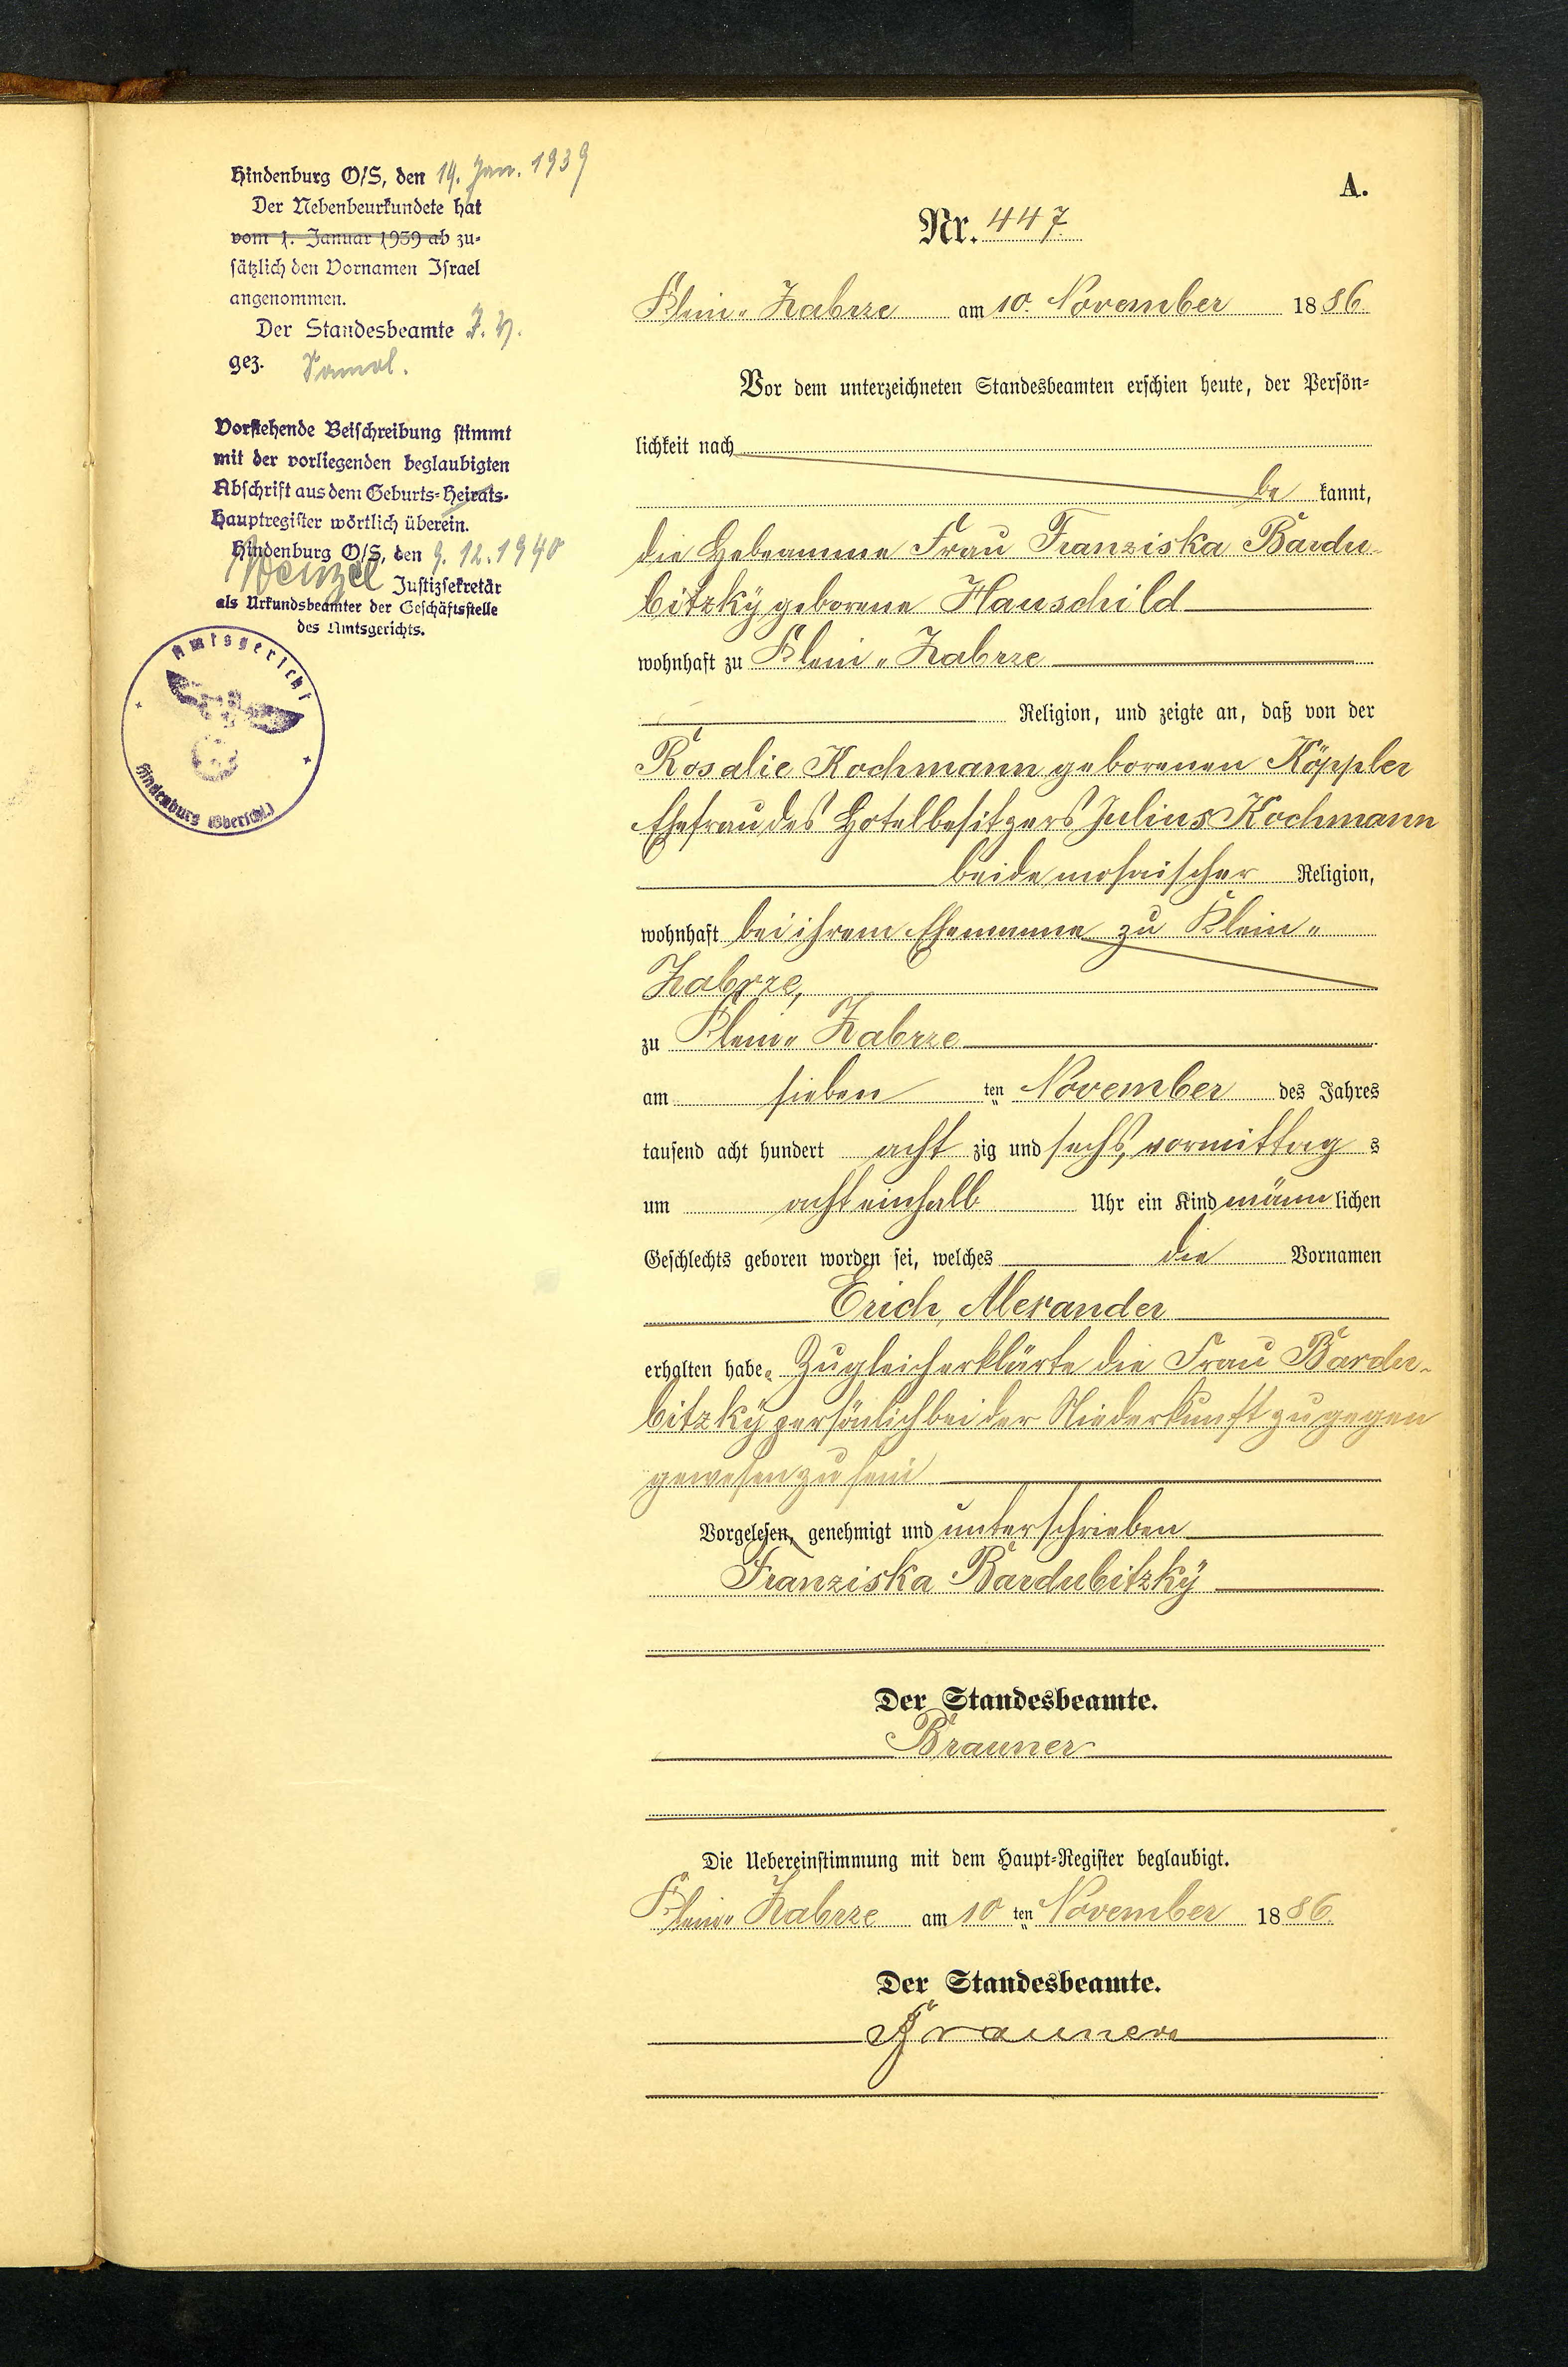 Hindenburg O/S, den 19. Jan. 1939
Der Nebenbeurkundete hat
vom 1. Januar 1939 ab zu-
sätzlich den Vornamen Israel
angenommen.
Der Standesbeamte J. V.
gez.
Vorstehende Beischreibung stimmt
mit der vorliegenden beglaubigten
Abschrift aus dem Geburts-Heirats-
Hauptregister wörtlich überein.
Hindenburg O/S, den 9. 12. 1940
Wenzel Justizsekretär
als Urkundsbeamter der Geschäftsstelle
des Amtsgerichts.
Amtsgericht
Hindenburg (Oberschl.)
A.
Nr. 447
Klein-Zabrze am 10. November 1886.
Vor dem unterzeichneten Standesbeamten erschien heute, der Persön-
lichkeit nach
be kannt,
die Hebeamme Frau Franziska Bardu-
bitzky geborene Hauschild
wohnhaft zu Klein-Zabrze
Religion, und zeigte an, daß von der
Rosalie Kochmann geborenen Köppler
Ehefrau des Hotelbesitzers Julius Kochmann
beide mosaischer Religion,
wohnhaft bei ihrem Ehemanne zu Klein-
Zabrze,
zu Klein-Zabrze
am sieben ten November des Jahres
tausend acht hundert acht zig und sechs, vormittag s
um acht einhalb Uhr ein Kind männ lichen
Geschlechts geboren worden sei, welches die Vornamen
Erich, Alexander
erhalten habe. Zugleich erklärte die Frau Bardu-
bitzky persönlich bei der Niederkunft zugegen
gewesen zu sein
Vorgelesen, genehmigt und unterschrieben
Franziska Bardubitzky
Der Standesbeamte.
Brauner
Die Uebereinstimmung mit dem Haupt-Register beglaubigt.
Klein-Zabrze am 10 ten November 1886.
Der Standesbeamte.
Brauner